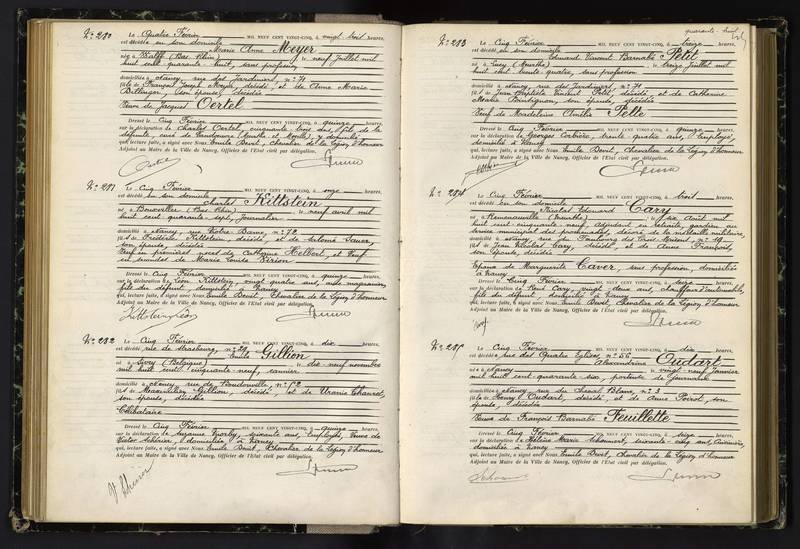 N° 280
Le Quatre Février MIL NEUF CENT VINGT-CINQ, à vingt trois heures,
est décédée en son domicile Marie Anne Meyer
née à Walff (Bas Rhin), le neuf Juillet mil
huit cent quarante-huit, sans profession
domiciliée à Nancy, rue des Jardiniers, n° 71
fille de François Joseph Meyer, décédé, et de Anne Marie
son épouse, décédée
Veuve de Jacques Oertel
Dressé le Cinq Février MIL NEUF CENT VINGT-CINQ, à quinze heures,
sur la déclaration de Charles Oertel, cinquante trois ans, fils de la
défunte, curé de (Meurthe et Moselle), y domicilié
qui, lecture faite, a signé avec Nous Emile Devit, Chevalier de la Légion d'honneur
Adjoint au Maire de la Ville de Nancy, Officier de l'Etat civil par délégation.
N° 281
Le Cinq Février MIL NEUF CENT VINGT-CINQ, à onze heures,
est décédé en son domicile Charles Kittstein
né à Bouxviller (Bas Rhin), le neuf avril mil
huit cent quarante-sept, Journalier
domicilié à Nancy, rue Notre-Dame, n° 72
fils de Frédéric Kittstein, décédé, et de Salomé Sauer,
son épouse, décédée
Veuf en premières noces de Catherine Helbert, et Veuf
en secondes de Marie Louise Virion
Dressé le Cinq Février MIL NEUF CENT VINGT-CINQ, à quinze heures,
sur la déclaration de Léon Kittstein, vingt quatre ans, aide magasinier,
fils du défunt, domicilié à Nancy
qui, lecture faite, a signé avec Nous Emile Devit, Chevalier de la Légion d'honneur
Adjoint au Maire de la Ville de Nancy, Officier de l'Etat civil par délégation.
Kittstein Léon
N° 282
Le Cinq Février MIL NEUF CENT VINGT-CINQ, à dix heures,
est décédé, rue de Strasbourg, n° Emile Gillion
né à Livry (Belgique), le dix neuf novembre
mil huit cent cinquante-neuf, vannier
domicilié à Nancy, rue de Vaudonville, n° 52
fils de Maximilien Gillion, décédé, et de Uranie
son épouse, décédée
Célibataire
Dressé le Cinq Février MIL NEUF CENT VINGT-CINQ, à quinze heures,
sur la déclaration de Suzanne soixante ans, Employée, Veuve de
Victor Schirier, domiciliée à Nancy
qui, lecture faite, a signé avec Nous Emile Devit, Chevalier de la Légion d'honneur
Adjoint au Maire de la Ville de Nancy, Officier de l'Etat civil par délégation.
quarante-huit
N° 283
Le Cinq Février MIL NEUF CENT VINGT-CINQ, à treize heures,
est décédé en son domicile Edouard Vincent Barnabé Petit
né à (Meurthe), le treize Juillet mil
huit cent trente-quatre, sans profession
domicilié à Nancy, rue des Jardiniers, n° 71
fils de Jean Baptiste Vincent Petit, décédé, et de Catherine
Marie son épouse, décédée
Veuf de Madeleine Amélie Pelle
Dressé le Cinq Février MIL NEUF CENT VINGT-CINQ, à quinze heures,
sur la déclaration de Georges trente quatre ans, Employé,
domicilié à Nancy
qui, lecture faite, a signé avec Nous Emile Devit, Chevalier de la Légion d'honneur
Adjoint au Maire de la Ville de Nancy, Officier de l'Etat civil par délégation.
N° 284
Le Cinq Février MIL NEUF CENT VINGT-CINQ, à trois heures,
est décédé en son domicile Nicolas Edouard Cary
né à (Meurthe), le six Août mil
huit cent cinquante-neuf, adjudant en retraite, gardien au
service municipal des promenades, décoré de la médaille militaire,
domicilié à Nancy, rue du Faubourg des Trois Maisons, n° 19
fils de Jean Nicolas Cary, décédé, et de Anne François,
son épouse, décédée
Epoux de Marguerite Caver, sans profession, domiciliée
à Nancy
Dressé le Cinq Février MIL NEUF CENT VINGT-CINQ, à seize heures,
sur la déclaration de René Cary, vingt deux ans, chauffeur d'automobile,
fils du défunt, domicilié à Nancy
qui, lecture faite, a signé avec Nous Emile Devit, Chevalier de la Légion d'honneur
Adjoint au Maire de la Ville de Nancy, Officier de l'Etat civil par délégation.
N° 285
Le Cinq Février MIL NEUF CENT VINGT-CINQ, à dix heures,
est décédée, rue des Quatre Eglises, n° 56 Alexandrine Oudart
née à Nancy, le vingt neuf Janvier
mil huit cent quarante-six, porteuse de journaux
domiciliée à Nancy, rue du Cheval Blanc, n° 3
fille de Henry Oudart, décédé, et de Anne Poirot, son
épouse, décédée
Veuve de François Barnabé Feuillette
Dressé le Cinq Février MIL NEUF CENT VINGT-CINQ, à seize heures,
sur la déclaration de Hélène Marie soixante-cinq ans, Cuisinière,
domiciliée à Nancy
qui, lecture faite, a signé avec Nous Emile Devit, Chevalier de la Légion d'honneur
Adjoint au Maire de la Ville de Nancy, Officier de l'Etat civil par délégation.